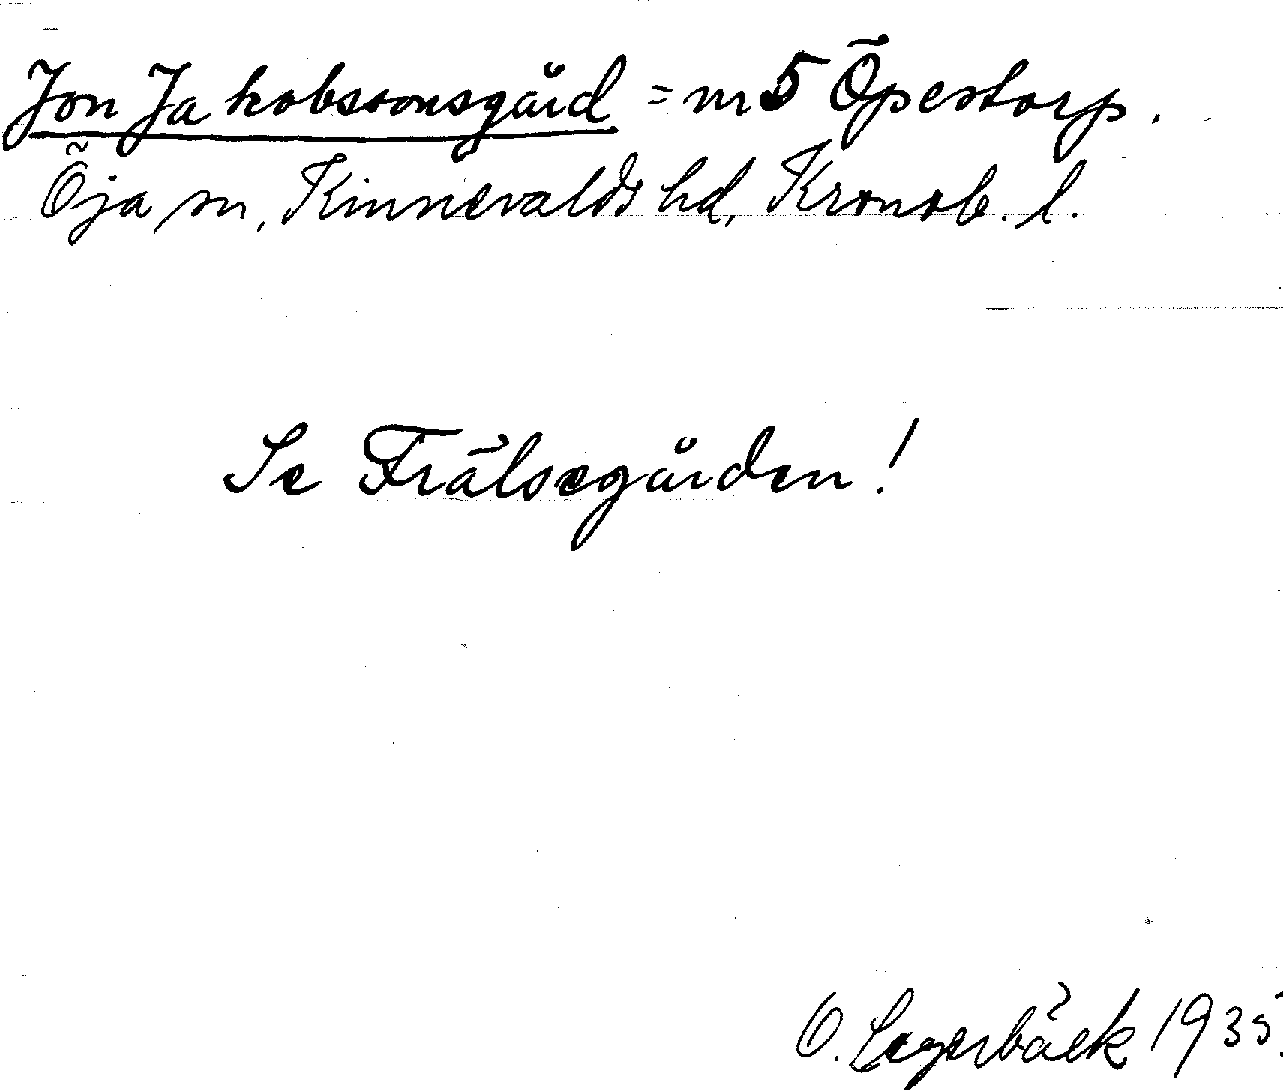 Jon Jakobssonsgård = nr 5 Öpestorp.
Öja sn, Kinnevalds hd, Kronob. l.
Se Frälsegården!
O. Lagerbäck 1935.